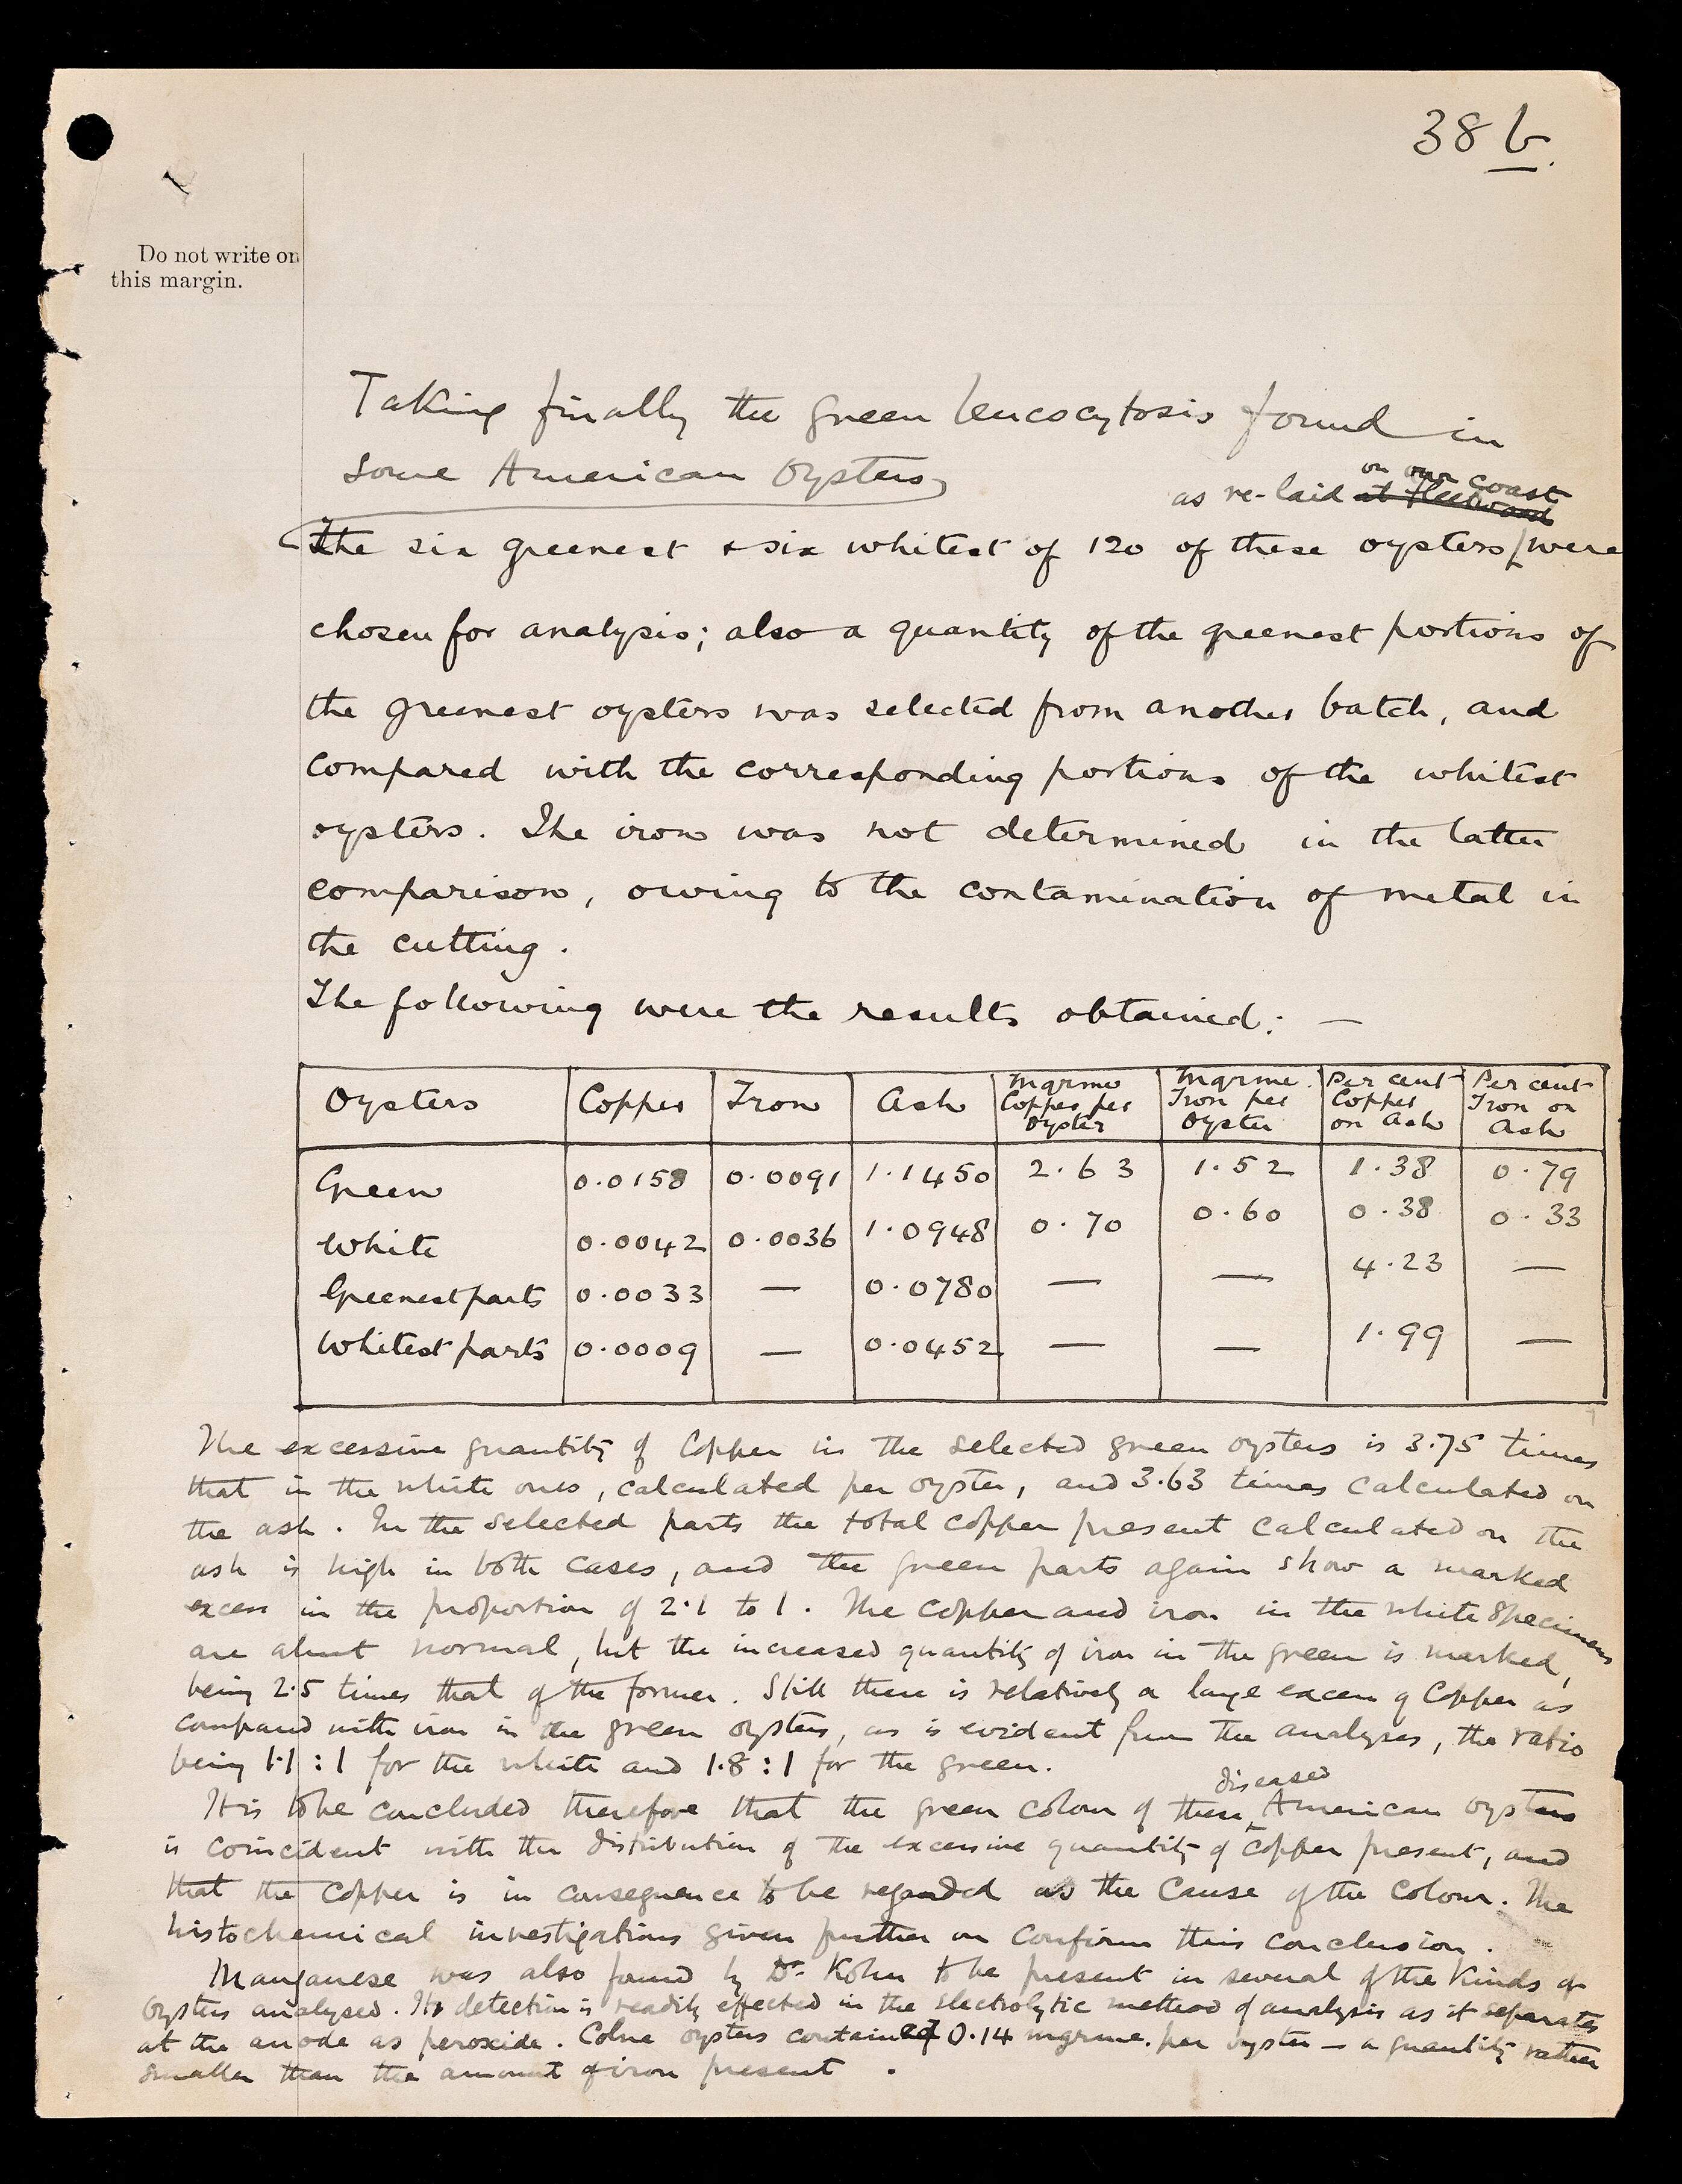 38 b.
Do not write on
this margin.
Taking finally the green leucocytosis found in
some American Oysters,
as re-laid at Fleetwood on our coast
The six greenest & six whitest of 120 of these oysters were
chosen for analysis; also a quantity of the greenest portions of
the greenest oysters was selected from another batch, and
compared with the corresponding portions of the whitest
oysters. The iron was not determined in the latter
comparison, owing to the contamination of metal in
the cutting.
The following were the results obtained: —
Oysters Copper Iron Ash Mgrme Copper per Oyster Mgrme. Iron per Oyster Per cent Copper on Ash Per cent Iron on Ash
Green 0.0158 0.0091 1.1450 2.63 1.52 1.38 0.79
White 0.0042 0.0036 1.0948 0.70 0.60 0.38 0.33
Greenest parts 0.0033 — 0.0780 — — 4.23 —
Whitest parts 0.0009 — 0.0452 — — 1.99 —
The excessive quantity of Copper in the selected green oysters is 3.75 times
that in the white ones, calculated per oyster, and 3.63 times calculated on
the ash. In the selected parts the total copper present calculated on the
ash is high in both cases, and the green parts again show a marked
excess in the proportion of 2.1 to 1. The copper and iron in the white specimens
are about normal, but the increased quantity of iron in the green is marked,
being 2.5 times that of the former. Still there is relatively a large excess of Copper as
compared with iron in the green oysters, as is evident from the analyses, the ratio
being 1.1 : 1 for the white and 1.8 : 1 for the green.
It is to be concluded therefore that the green colour of these diseased American oysters
is coincident with the distribution of the excessive quantity of copper present, and
that the copper is in consequence to be regarded as the cause of the colour. The
histochemical investigations given further on confirm this conclusion.
Manganese was also found by Dr. Kohn to be present in several of the kinds of
Oysters analysed. Its detection is readily effected in the electrolytic method of analysis as it separates
at the anode as peroxide. Colne oysters contained 0.14 mgrme. per oyster — a quantity rather
smaller than the amount of iron present.